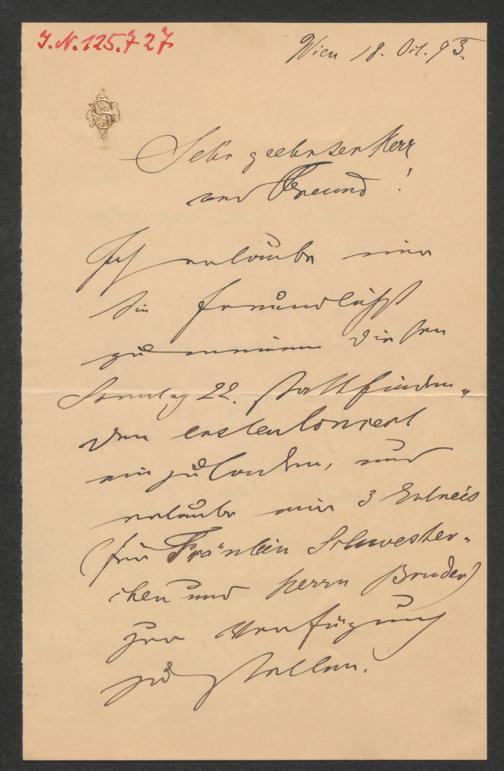 I.N. 125.727
Wien 18. Oct. 93.
Sehr geehrter Herr
und Freund!
Ich erlaube mir
Sie freundlichst
zu meinem diesen
Sonntag 22. stattfinden-
den ersten Concert
einzuladen, und
erlaube mir 3 Entreés
(für Fräulein Schwester-
chen und Herrn Bruder)
zur Verfügung
zu stellen.